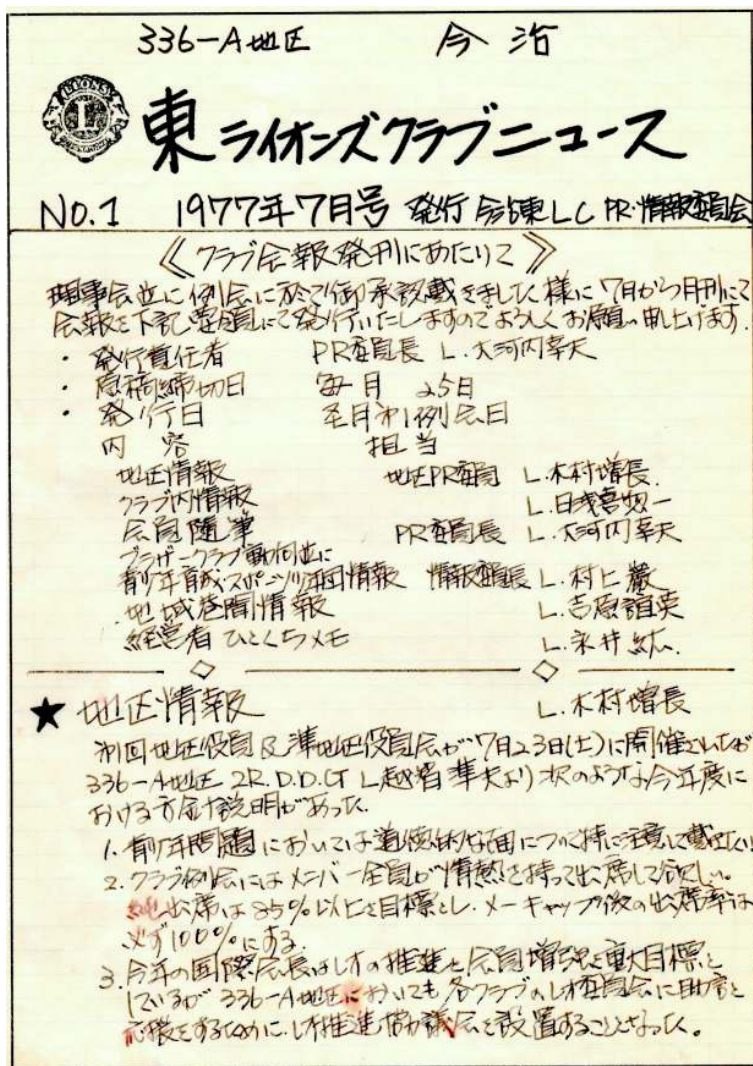 336-A地区 今治
LIONS
L
INTERNATIONAL
東ライオンズクラブニュース
No.1 1977年7月号 発行 今治東LC PR・情報委員会
《クラブ会報発刊にあたりて》
理事会並に例会に於て御承認戴きました様に7月から月刊にて
会報を下記要領にて発行いたしますのでよろしくお願い申し上げます.
・発行責任者 PR委員長 L.大河内幸夫
・原稿締切日 毎月 25日
・発行日 毎月第1例会日
内容 担当
地区情報 地区PR委員 L.木村増長.
クラブ内情報 L.日浅喜惣一
会員随筆 PR委員長 L.大河内幸夫
ブラザークラブ動向並に
青少年育成・スポンジリ年団情報 情報委員長 L.村上巌
地域巷間情報 L.吉原誼英
経営者ひとくちメモ L.永井紘.
★地区情報 L.木村増長
第1回地区役員及準地区役員会が7月23日(土)に開催されたが
336-A地区 2R.D.D.G L越智準夫より次のような今年度に
おける方針説明があった.
1.青少年問題においては道徳的な面について特に注意して戴きたい
2.クラブ例会にはメンバー全員が情熱を持って出席して欲しい。
出席は85%以上を目標とし.メーキャップ後の出席率は
必ず100%にする.
3.今年の国際会長はレオの推進と会員増強を重大目標と
しているが336-A地区においても各クラブのレオ委員会に助言と
応援をするために.レオ推進協議会を設置することとなった。